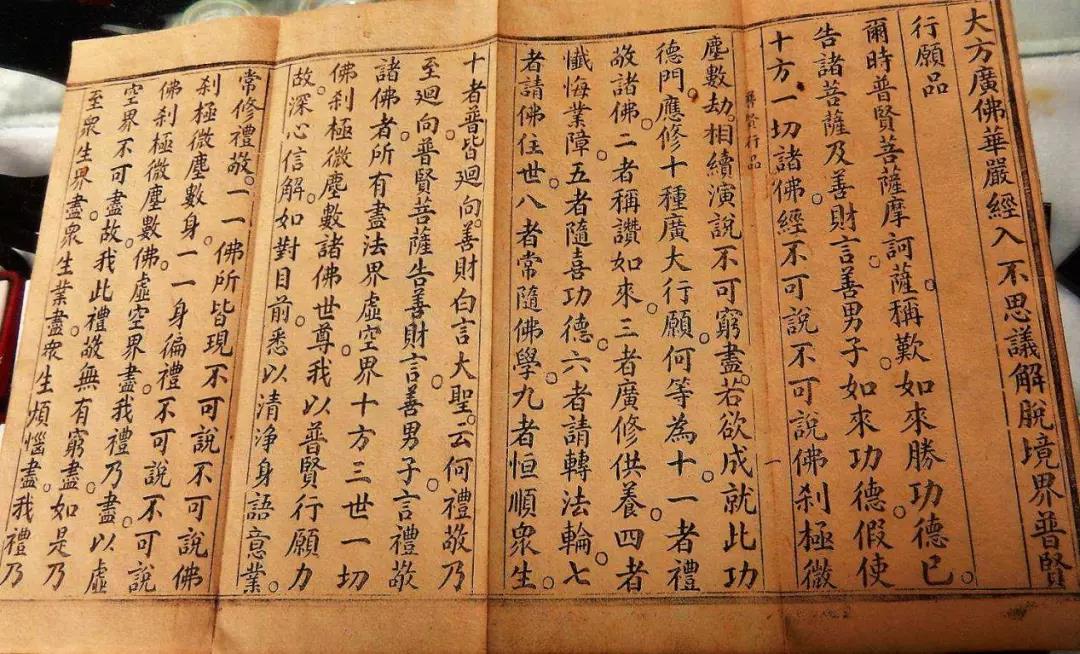 大方廣佛華嚴經入不思議解脫境界普賢
行願品
爾時普賢菩薩摩訶薩。稱歎如來勝功德已。
告諸菩薩及善財言。善男子。如來功德。假使
十方一切諸佛。經不可說不可說佛剎極微
普賢行品
一
塵數劫。相續演說不可窮盡。若欲成就此功
德門。應修十種廣大行願。何等為十。一者禮
敬諸佛。二者稱讚如來。三者廣修供養。四者
懺悔業障。五者隨喜功德。六者請轉法輪。七
者請佛住世。八者常隨佛學。九者恒順眾生。
十者普皆迴向。善財白言大聖。云何禮敬。乃
至迴向。普賢菩薩告善財言。善男子。言禮敬
諸佛者。所有盡法界虛空界。十方三世一切
佛剎極微塵數諸佛世尊。我以普賢行願力
故。深心信解。如對目前。悉以清淨身語意業。
常修禮敬。一一佛所。皆現不可說不可說佛
剎極微塵數身。一一身徧禮不可說不可說
佛剎極微塵數佛。虛空界盡。我禮乃盡。以虛
空界不可盡故。我此禮敬無有窮盡。如是乃
至眾生界盡。眾生業盡。眾生煩惱盡。我禮乃